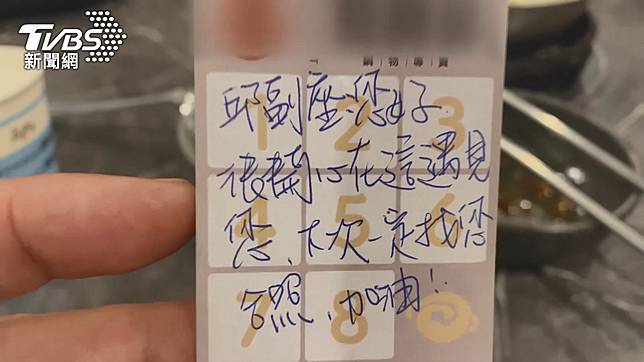 TVBS
新聞網
購|物|專|賣
邱副座您好
很開心在這遇見
您、下次一定找您
合照、加油!
1 2 3
4 5 6
7 8